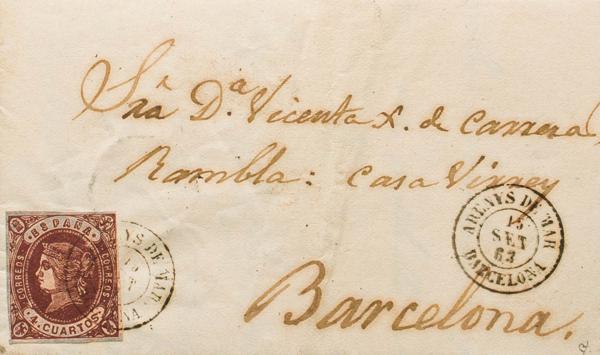 Sra Da Vicenta X. de Carrera,
Rambla: casa Virrey
Barcelona.
ARENYS DE MAR
15
SET
63
BARCELONA
ESPAÑA
CORREOS
CORREOS
4 CUARTOS
YS DE MAR
NA